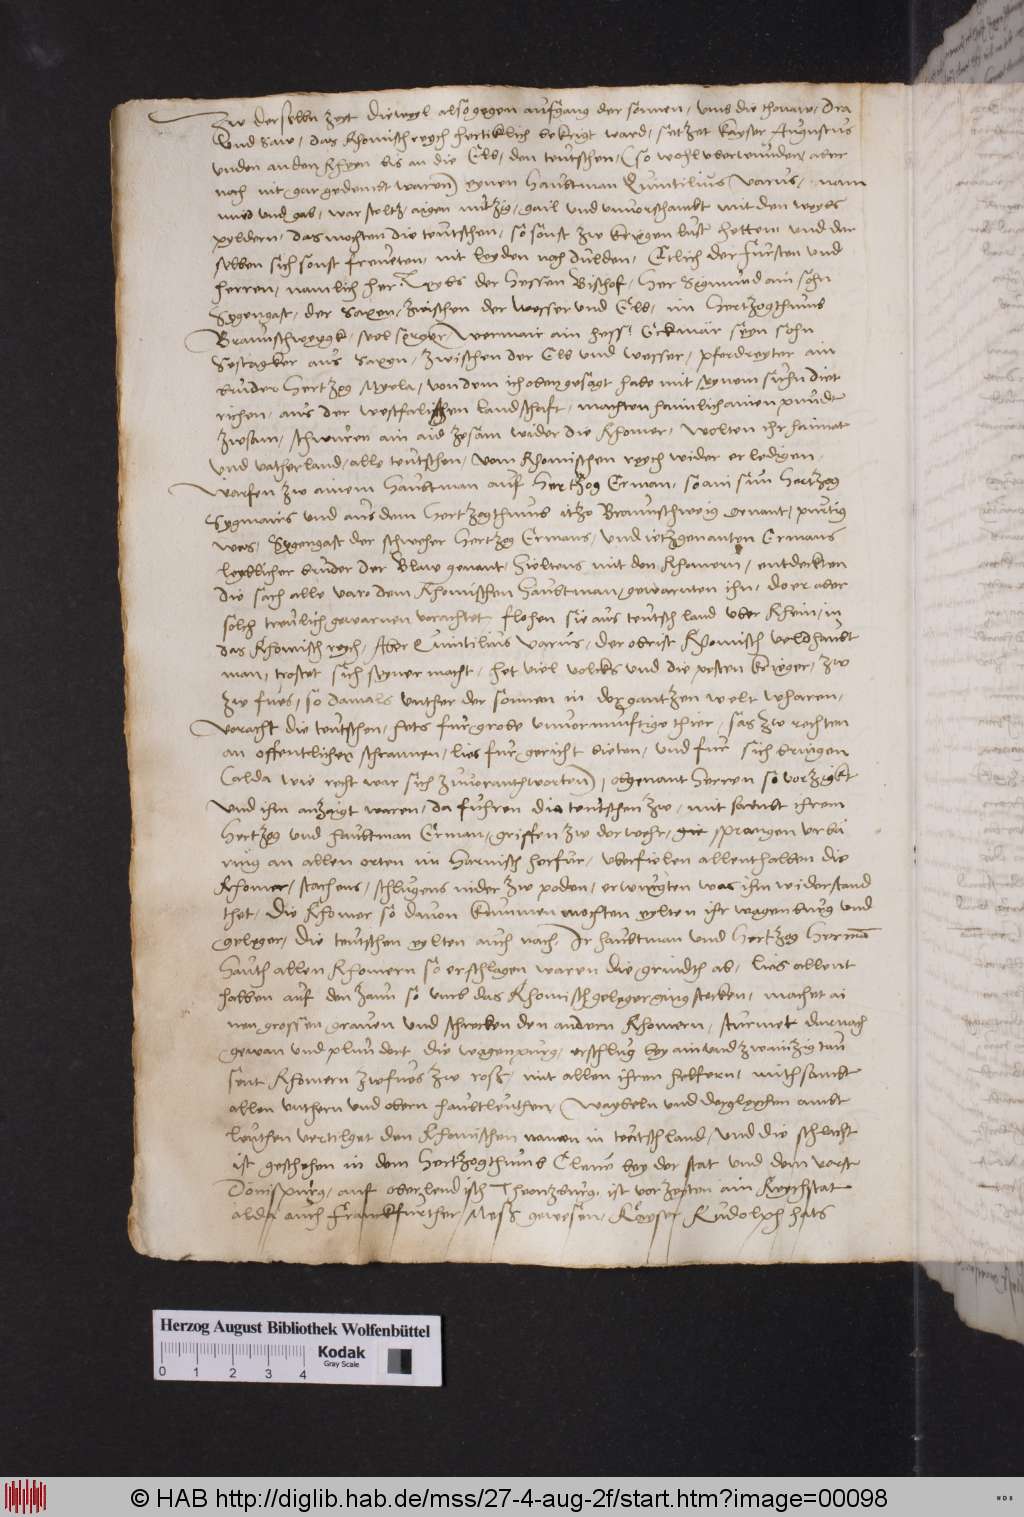 Zw derselben zeyt dieweyl also gegen aufgang der sonnen, umb die thonaw, Dra
und Saw, das Rhomisch reych hertiklich bekrigt ward, setzet kayser Augustus
unden an den Rheyn bis an die Elb, den teutschen, (so wohl uberwunden, aber
noch nit gar gedembt waren) eynen haubtman Quintilius Varus, nam
mued und gab, war stoltz, aigen nützig, gail und unvorschambt mit den weybs
pyldern, das mochten die teutschen, so sonst zw krigen lust hetten und der
selben sich sonst freueten, nit leyden noch dulden, Etlich der fürsten und
herren, namlich her Lybs der Hessen Bischof, Her Sigmund ain sohn
Segengast, der Saxen, zwischen der Wesser und Elb, im Hertzogthumb
Braunschweygk, Wermair ain Hess, Eckmar seyn sohn
Sestagker aus Saxen, zwischen der Elb und Wesser, pferdreyter ain
bruder Hertzog Meela, von dem ich oben gesagt habe mit seynem suhn Diet
richen, aus der Westfalischen landschaft, machten haimlich ainen pundt
zwsam, schwuren ain aid zesam wider die Rhomer, wolten ihr haimat
und vatherland, alle teutschen, vom Rhomischen reych wider erledigen,
Worfen zw ainem haubtman auf Hertzog Erman, so ain sun Hertzog
Sygmairs und aus dem Hertzogthumb itzo Braunschweig genant, purtig
was, Segengast der schweher Hertzog Ermans, und ietzgenanten Ermans
leyblicher bruder der Blaw genant, hieltens mit den Rhomern, entdeckten
die sach alle varo dem Rhomischen haubtman, gewarnten ihn, do er aber
solch treulich gewarnen vorachtet flohen sie aus teutsch land uber Rhein, in
das Rhomisch reych, Aber Quintilius Varus, der obrist Rhomisch veldhaubt
man, trostet sich seyner macht, het viel volcks und die pesten krieger, zw
zw fues, so damals unther der sonnen in der gantzen welt wharen,
voracht die teutschen, hets für grobe unvernunftige thier, sas zw rechten
an offentlichen schrannen, lies für gericht bieten, und für sich bringen
(alda wie recht war sich zuvoranthworten) obgenant herren so vorzigkt
und ihm anzaigt waren, da fuhren die teutschen zw, mit sambt ihrem
Hertzog und haubtman Erman, griffen zw der wehr, sprangen urbä
ring an allen orten im Harnisch herfür, uberfielen allenthalben die
Rhomer, stachens, schlugens nider zw poden, erwürgten was ihn widerstand
thet, Die Rhomer so davon kummen mochten eylten ihr wagenburg und
geleger, die teutschen eylten auch nach, Ir haubtman und Hertzog Herman
hauth allen Rhomern so erschlagen waren die grindth ab, lies allent
halben auf den zaun so umb das Rhomisch geleger ging stecken, machet ai
nen grossen grauen und schrecken den andern Rhomern, sturmet darnach
gewan und plundert die wagenpurg, erschlug bey ain und zwainzig tau
sent Rhomern zwfues zw ross, mit allen ihren helfern, mithsambt
allen unthern und obern haubtleuthen, Waybeln und dergleychen ambt
leuthen vertilget den Rhomischen namen in teutschland, und die schlacht
ist geschehen in dem Hertzogthumb Cleve bey der stat und dem vorst
Doinspurg, auf oberlendisch Theonzburg, ist vor zeyten ain Reychstat
alda auch Franckfurther Mess gewesen, Kayser Rudolph hats
Herzog August Bibliothek Wolfenbüttel
0 1 2 3 4
Kodak
Gray Scale
© HAB http://diglib.hab.de/mss/27-4-aug-2f/start.htm?image=00098